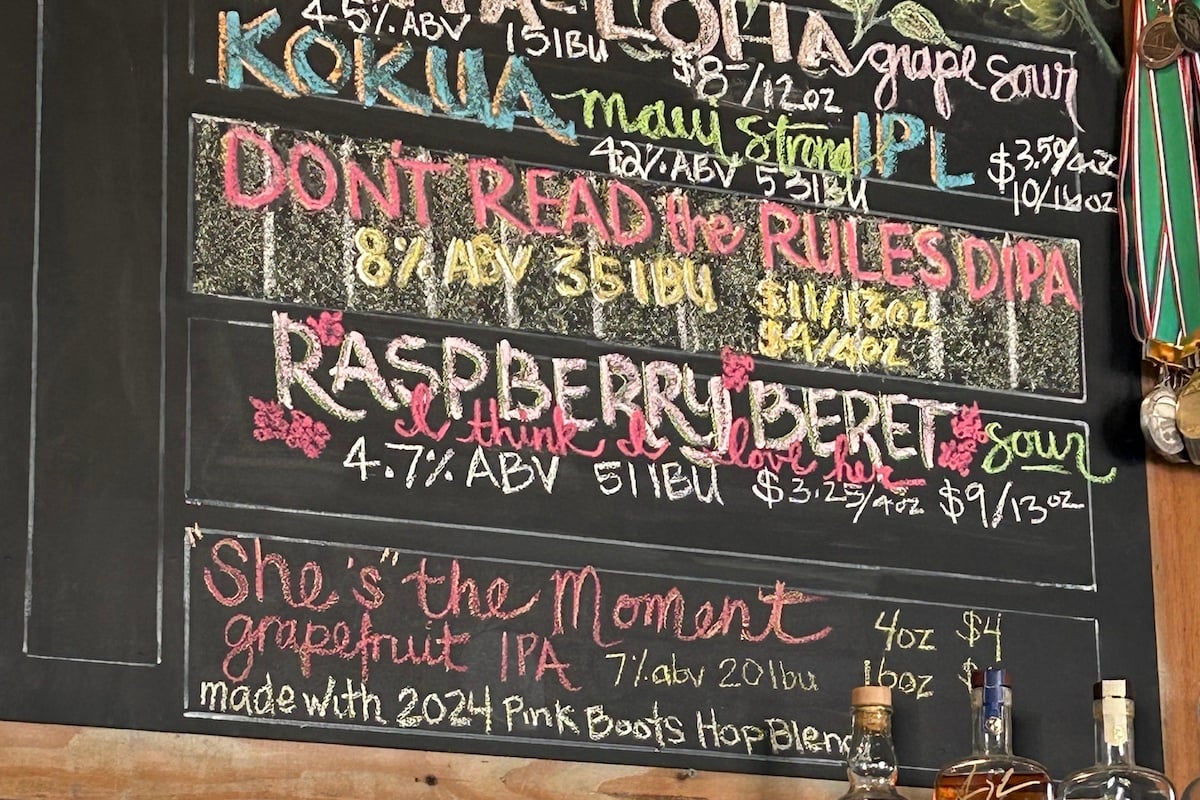 LOHA grape sour
4.5% ABV 15 IBU $8-/12oz
KOKUA Maui Strong IPL
4.2% ABV 53 IBU $3.50/4oz
10/16oz
DON'T READ the RULES DIPA
8% ABV 35 IBU $11/13oz
$4/4oz
RASPBERRY BERET sour
I think I love her
4.7% ABV 51 IBU $3.25/4oz $9/13oz
"She's" the Moment
grapefruit IPA 7% abv 20 Ibu
4oz $4
16oz $
made with 2024 Pink Boots Hop Blend